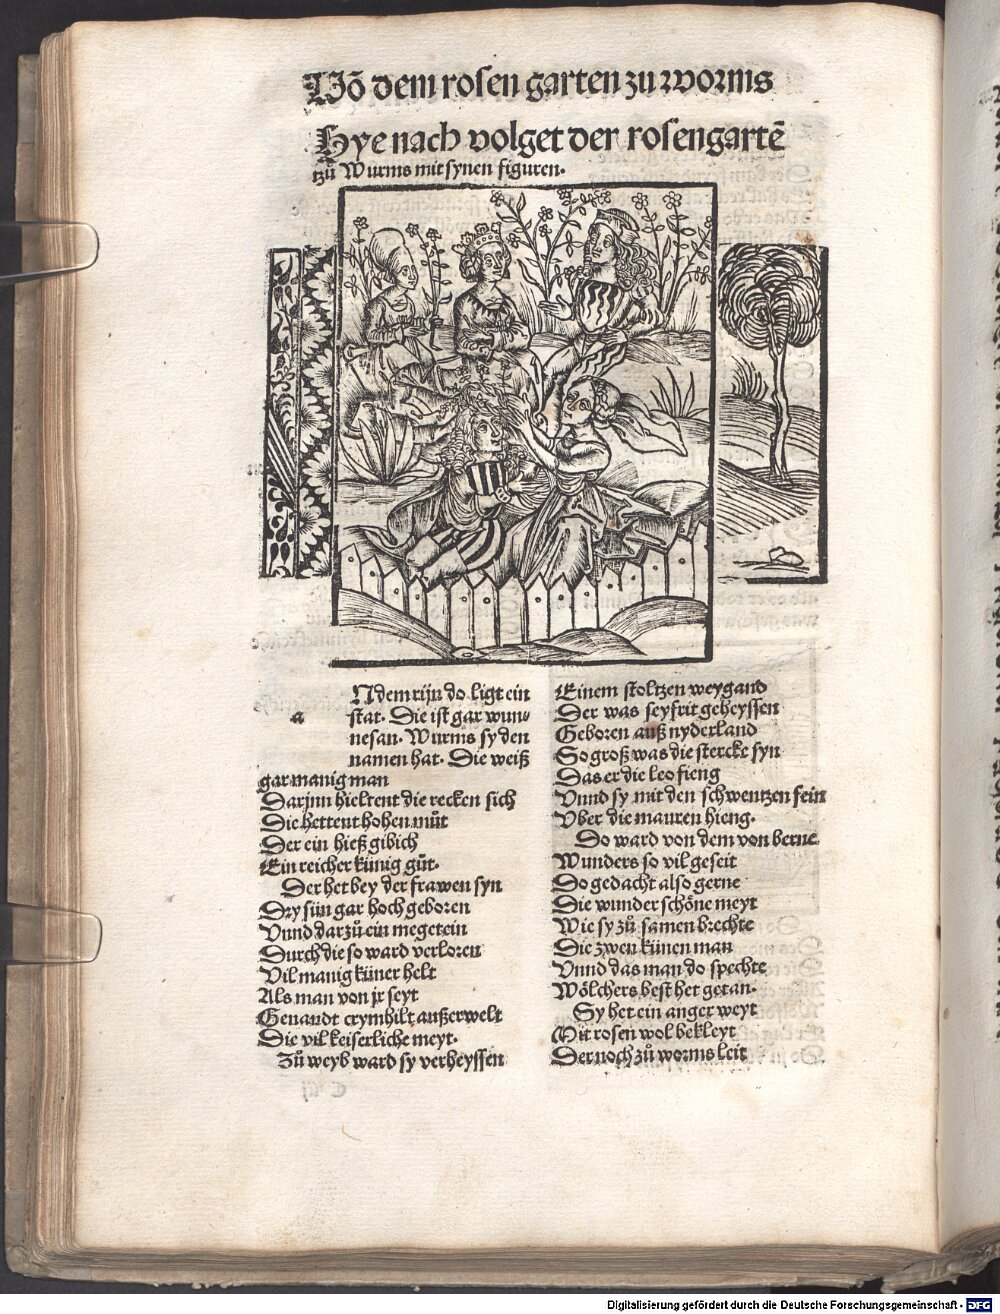 Vō dem rosen garten zu worms
Hye nach volget der rosengartē
zů Wurms mit synen figuren.
a
N dem rijn do ligt ein
stat. Die ist gar wun⸗
nesan. Wurms sy den
namen hat. Die weiß
gar manig man
Darjnn hieltent die recken sich
Die hettent hohen můt
Der ein hieß gibich
Ein reicher künig gůt.
Der het bey der frawen syn
Dry sün gar hoch geboren
Vnnd darzů ein megetein
Durch die so ward verloren
Vil manig küner helt
Als man von jr seyt
Genandt crymhilt außerwelt
Die vil keiserliche meyt.
Zů weyb ward sy verheyssen
Einem stoltzen weygand
Der was seyfrit geheyssen
Geboren auß nyderland
So groß was die stercke syn
Das er die leo fieng
Vnnd sy mit den schwentzen fein
Vber die mauren hieng.
Do ward von dem von berne
Wunders so vil geseit
Do gedacht also gerne
Die wunder schöne meyt
Wie sy zů samen brechte
Die zwen künen man
Vnnd das man do spechte
Wölchers best het getan.
Sy het ein anger weyt
Mit rosen wol bekleyt
Der noch zů worms leit
Digitalisierung gefördert durch die Deutsche Forschungsgemeinschaft - DFG